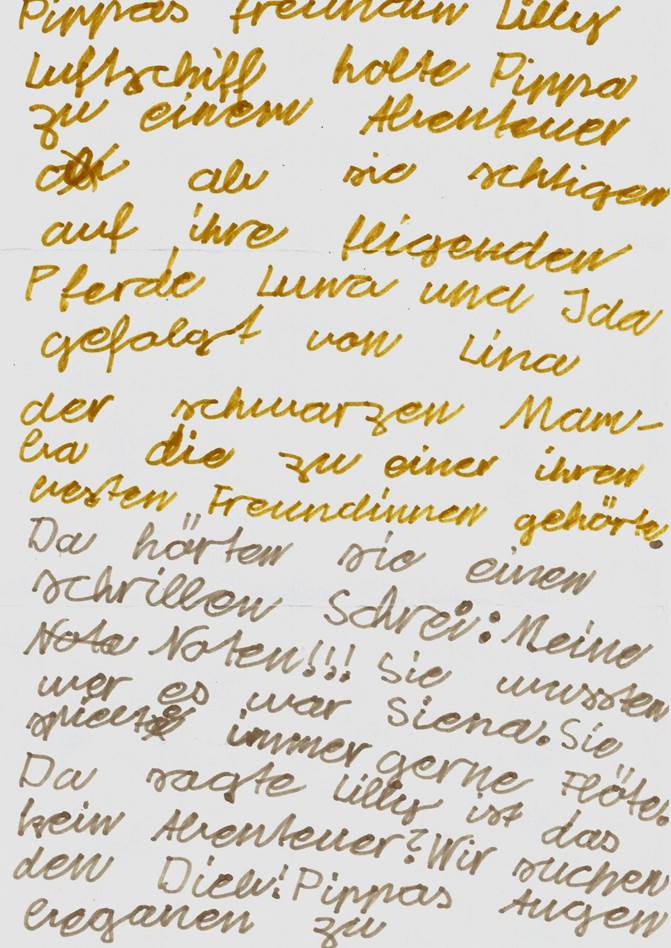 Pippas freundin Lilly
Luftschiff holte Pippa
zu einem Abenteuer
ab als sie schtigen
auf ihre fligenden
Pferde Luna und Ida
gefolgt von Lina
der schwarzen Mam-
ba die zu einer ihren
besten Freundinnen gehörte.
Da hörten sie einen
schrillen Schrei: Meine
Note Noten!!! Sie wussten
wer es war Siena. Sie
spielte immer gerne Flöte.
Da sagte Lilly ist das
kein Abenteuer? Wir suchen
den Dieb! Pippas Augen
beganen zu